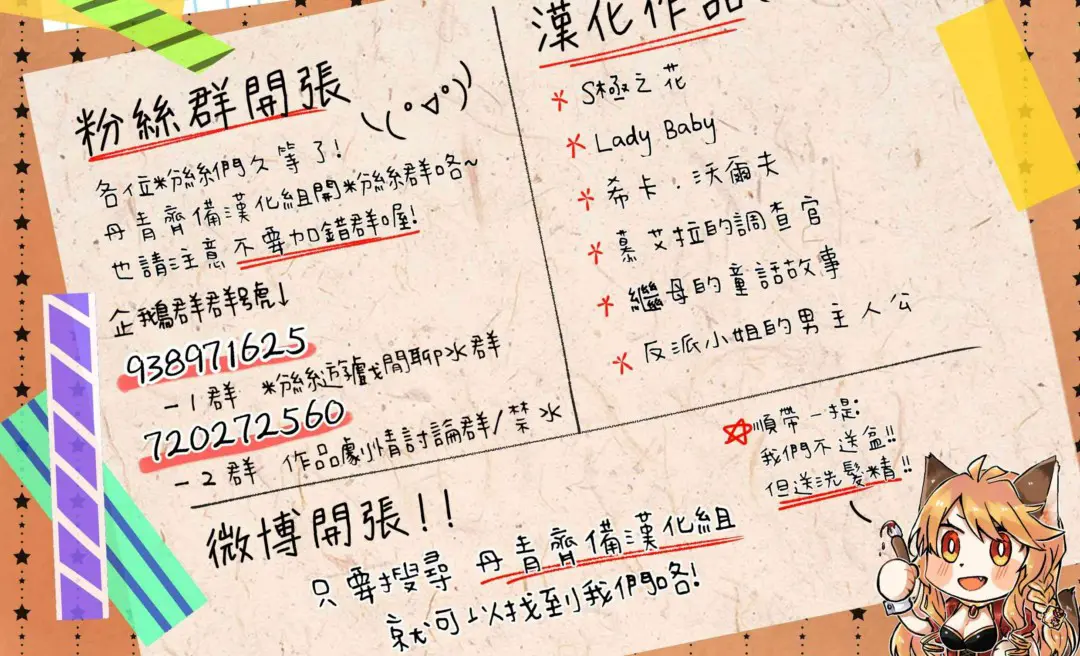 粉絲群開張
\\(°▽°)
各位粉絲們久等了!
丹青齊備漢化組開粉絲群咯~
也請注意不要加錯群喔!
企鵝群群號↓
938971625
-1群 粉絲遊戲閒聊水群
720272560
-2群 作品劇情討論群/禁水
漢化作品
S極之花
Lady Baby
希卡.沃爾夫
慕艾拉的調查官
繼母的童話故事
反派小姐的男主人公
順帶一提:
我們不送盆!!
但送洗髮精!!
微博開張!!
只要搜尋 丹青齊備漢化組
就可以找到我們咯!